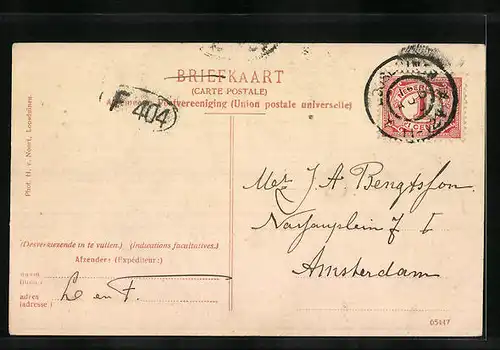 BRIEFKAART
(CARTE POSTALE)
Algemeene Postvereeniging (Union postale universelle)
F 404
1
CENT
Phot. H. v. Noort, Loosduinen.
J. A. Bengtsson
Nassauplein 7 I
Amsterdam
(Desverkiezende in te vullen.) (Indications facultatives.)
Afzender: (Expéditeur:)
naam
(nom)
adres
(adresse)
L. en F.
05147